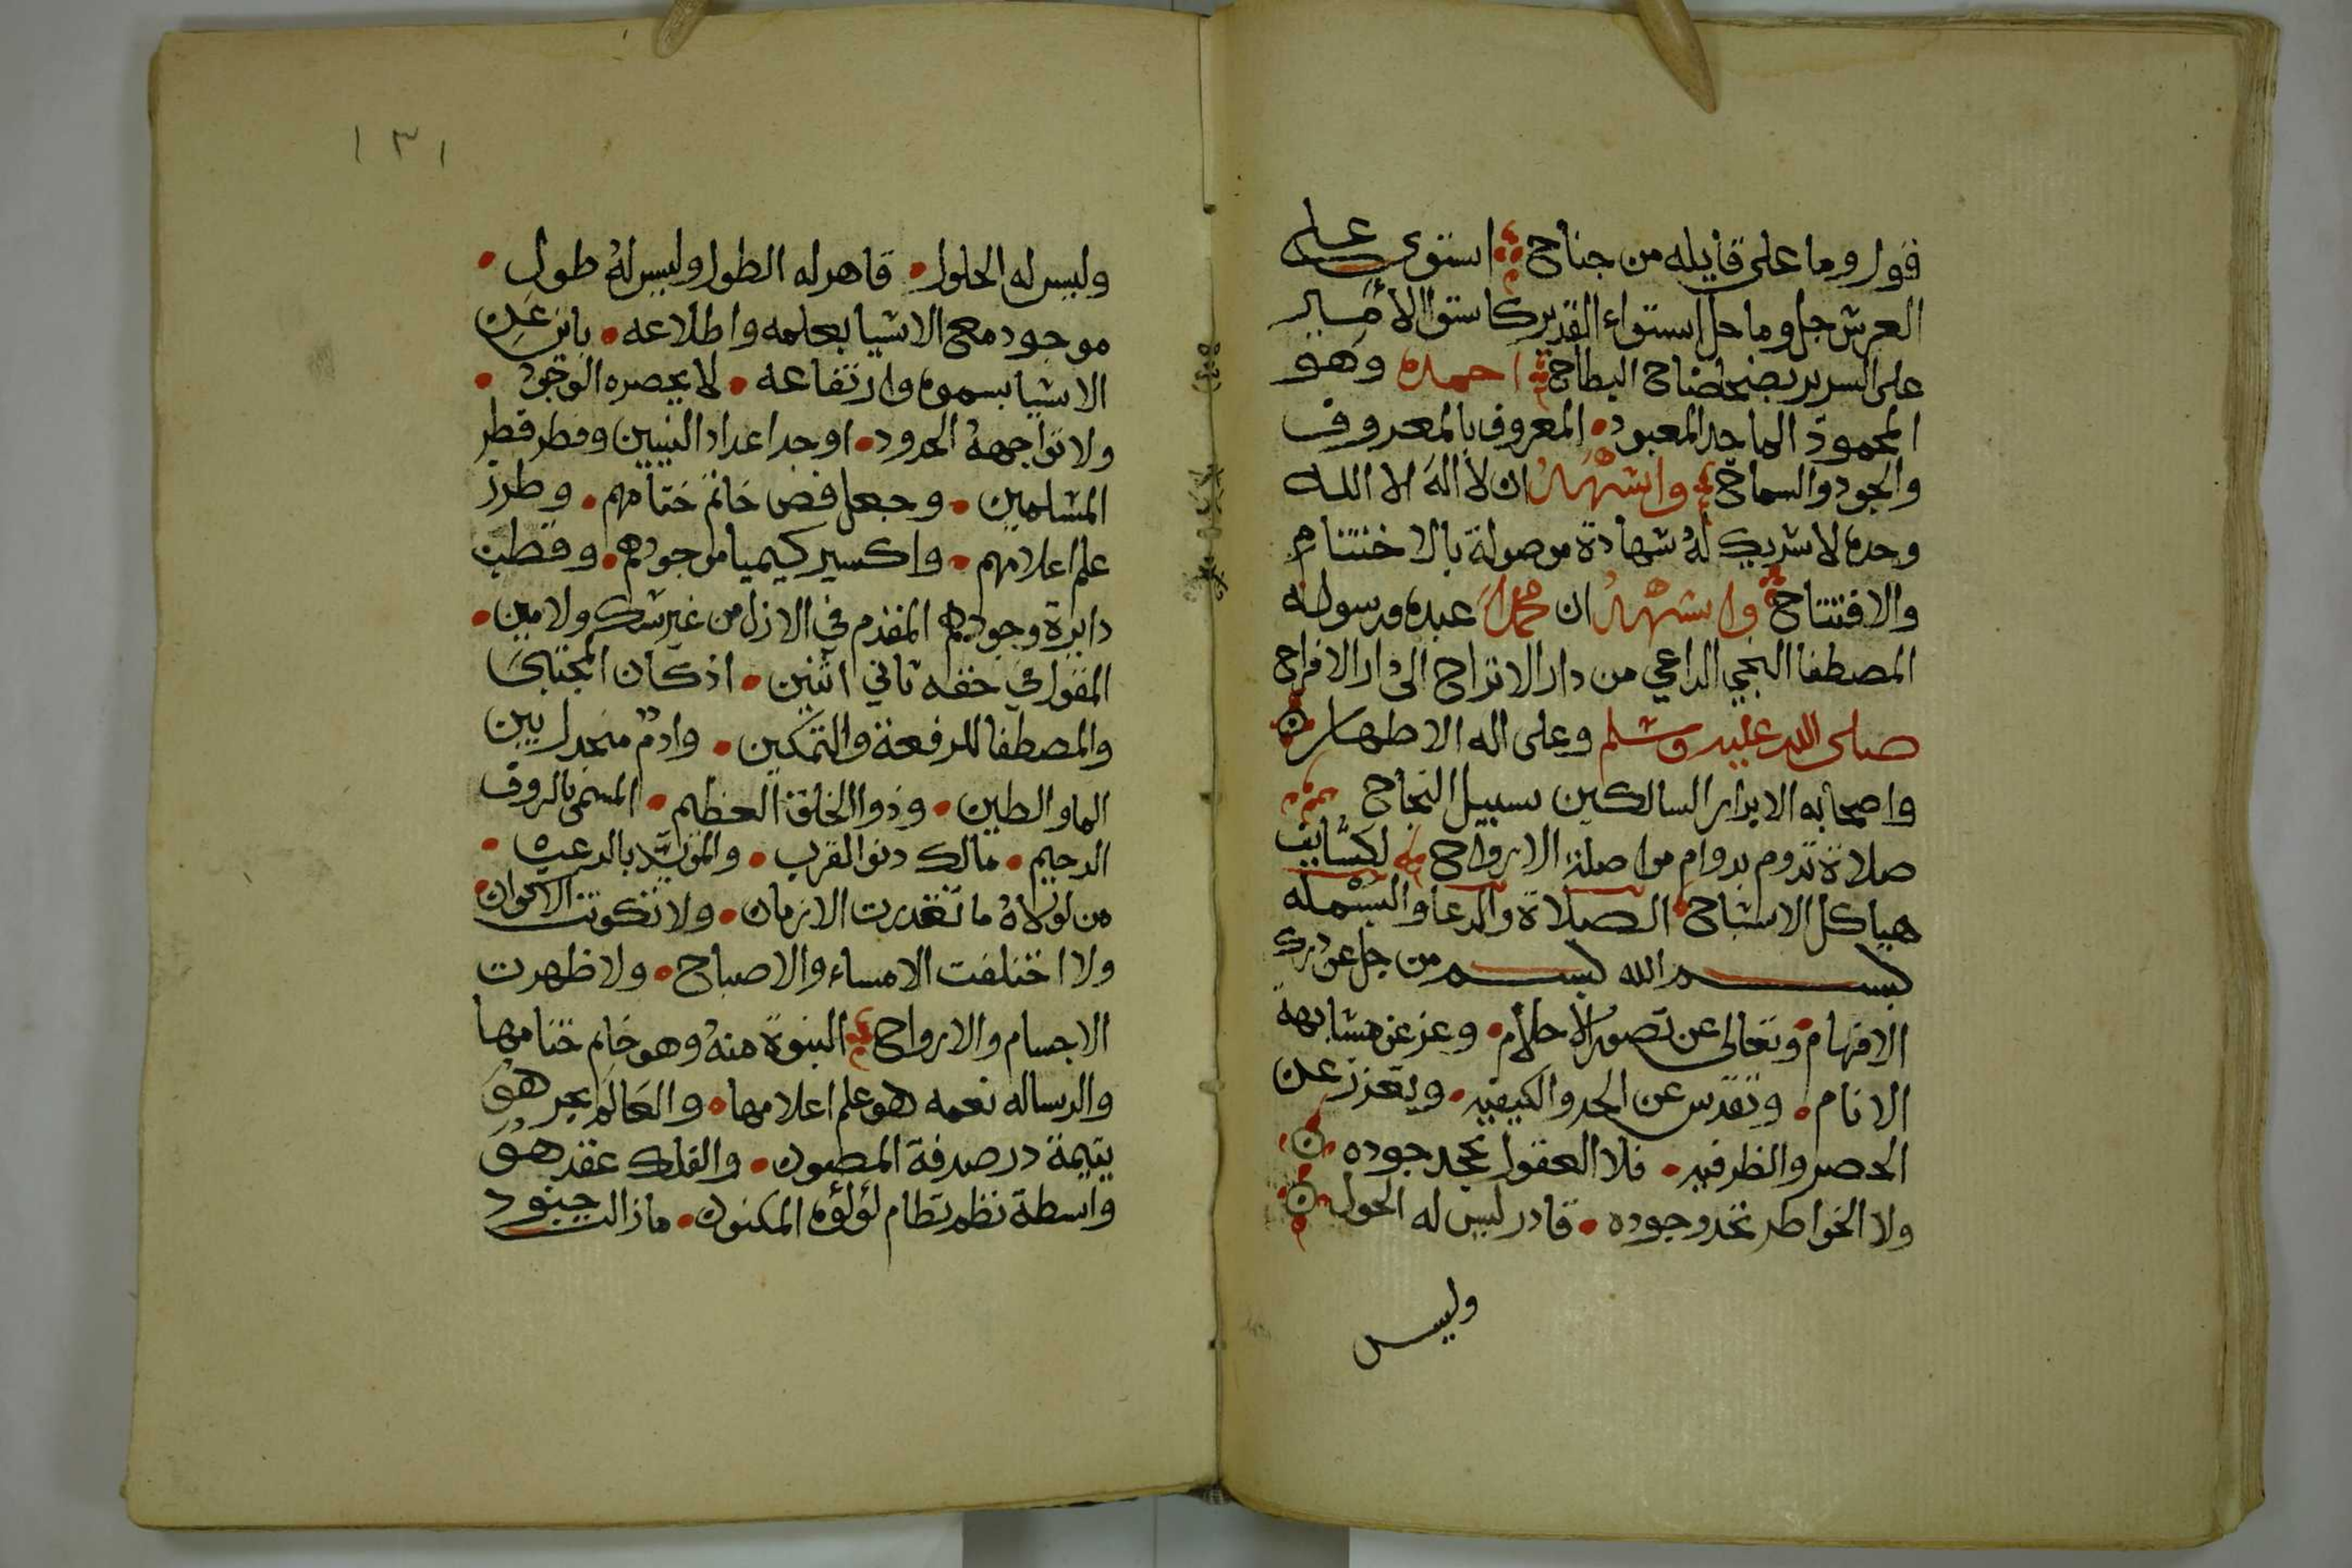 فول وما على قايله من جناح استوى على
العرش جل وما حل استواء القدير كاستوا الأمير
على السرير بضحضاح البطاح احمده وهو
المحمود الماجد المعبود المعروف بالمعروف
والجود والسماح واشهد ان لا اله الا الله
وحده لا شريك له شهادة موصولة بالاختتام
والافتتاح واشهد ان محمدا عبده ورسوله
المصطفا النجي الداعي من دار الاتراح الى دار الافراح
صلى الله عليه وسلم وعلى اله الاطهار
واصحابه الابرار السالكين سبيل النجاح
صلاة تدوم بدوام مواصلة الارواح لكسايف
هياكل الاشباح الصلاة والدعا والبسمله
بسم الله بسم من جل عن درك
الافهام وتعالى عن تصور الأحلام وعز عن مشابهة
الانام وتقدس عن الحد والكيفيه ويعزز عن
الحصر والظرفيه فلا العقول تجحد جوده
ولا الخواطر تحد وجوده قادر ليس له الحول
وليس
١٣١
وليس له الحلول قاهر له الطول وليس له طول
موجود مع الاشيا بعلمه واطلاعه باين عن
الاشيا بسموه وارتفاعه لا يحصره الوجود
ولا تواجهه الحدود اوجد اعداد النبيين وفطر قطر
المسلمين وجعل فص خاتم ختامهم وطرز
علم اعلامهم واكسير كيميا موجودهم وقطب
دايرة وجودهم المقدم في الازل من غير شك ولا مين
المقول في حقه ثاني اثنين اذ كان المجتبى
والمصطفا للرفعة والتمكين وادم منجدل بين
الما والطين وذوا الخلق العظيم المسمى بالروف
الرحيم مالك دنو القرب والمؤيد بالرعب
من لولاه ما تقدرت الازمان ولا تكونت الاكوان
ولا اختلفت الامساء والاصباح ولا ظهرت
الاجسام والارواح النبوة منه وهو خاتم ختامها
والرساله نعمه هو علم اعلامها والعالم بحر هو
يتيمة در صدفة المصون والفلك عقد هو
واسطة نظم نظام لؤلؤه المكنون مازالت جنود